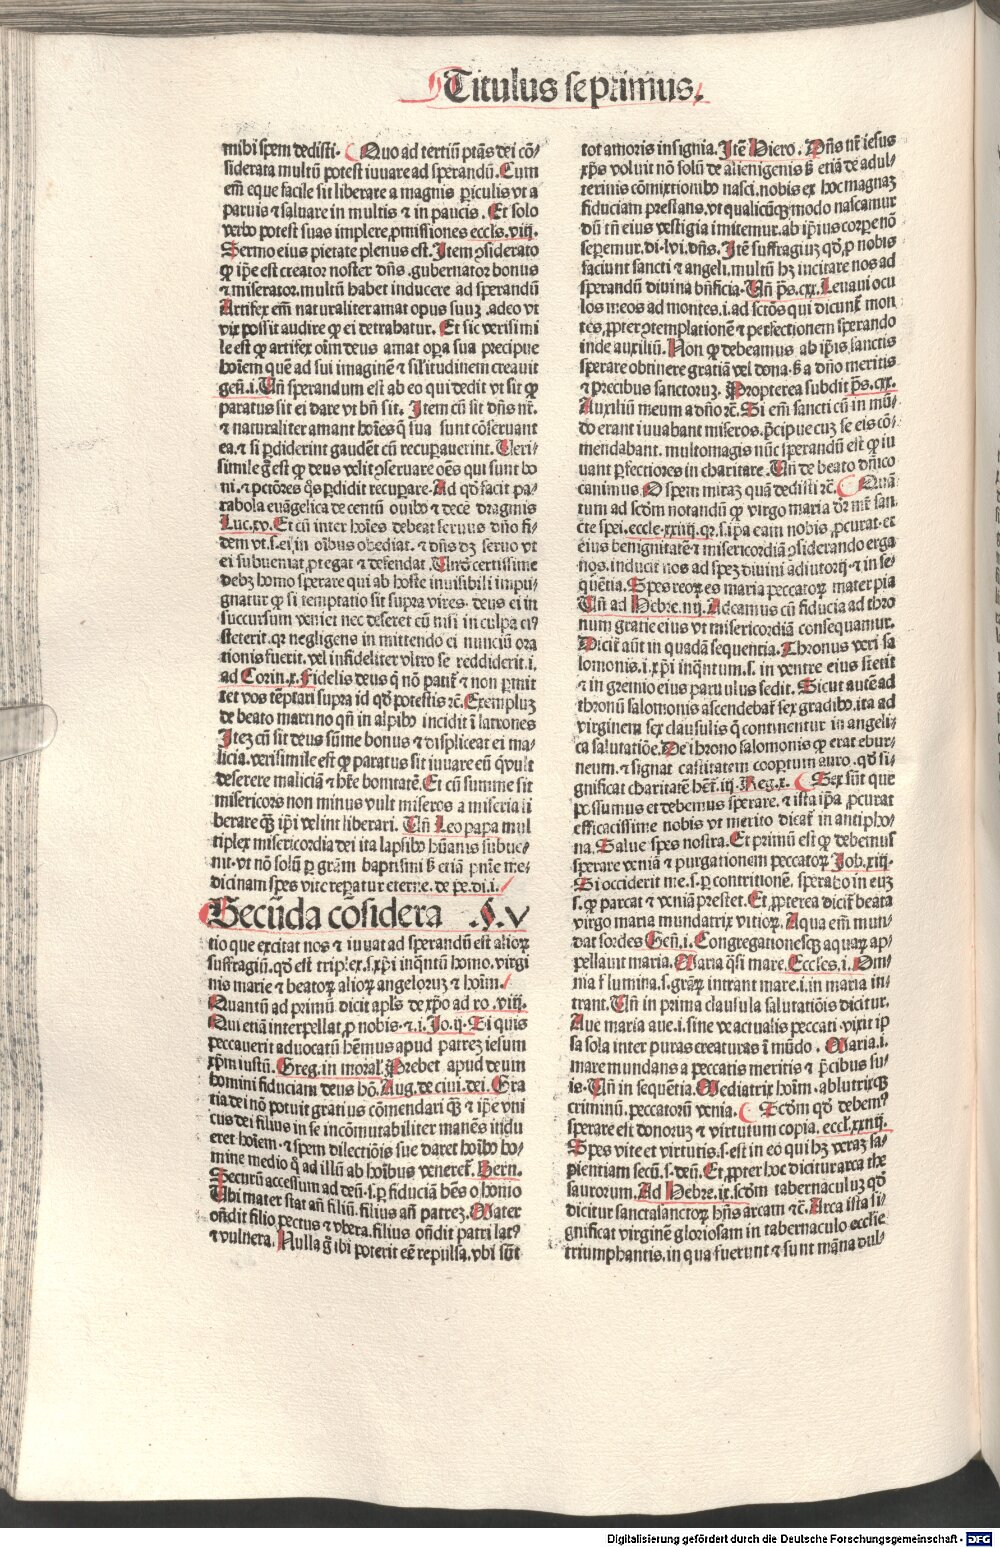 Titulus septimus.
mihi spem dedisti. Quo ad tertiũ ptãs dei cõ/
siderata multũ potest iuuare ad sperandũ. Cum
em̃ eque facile sit liberare a magnis ꝑiculis vt a
paruis ⁊ saluare in multis ⁊ in paucis. Et solo
verbo potest suas implere ꝓmissiones eccls. viij.
Sermo eius pietate plenus est. Item ꝯsiderato
ꝙ ip̃e est creator noster dñs. gubernator bonus
⁊ miserator. multũ habet inducere ad sperandũ
Artifex em̃ naturaliter amat opus suuȝ. adeo vt
vix possit audire ꝙ ei detrahatur. Et sic verisimi
le est ꝙ artifex oĩm deus amat oꝑa sua precipue
hoĩem quẽ ad sui imaginẽ ⁊ sil'itudinem creauit
geñ. i. Uñ sperandum est ab eo qui dedit vt sit ꝙ
paratus sit ei dare vt bñ sit. Item cũ sit dñs nr̃.
⁊ naturaliter amant hoĩes q̃ sua sunt cõseruant
ea. ⁊ si ꝑdiderint gaudẽt cũ recuꝑauerint. Ueri/
simile g̃ est ꝙ deus velit ꝯseruare oẽs qui sunt bo
ni. ⁊ pctõres q̃s ꝑdidit recuꝑare. Ad qd̃ facit pa/
rabola euãgelica de centũ ouibꝰ ⁊ decẽ dragmis
Luc. xv. Et cũ inter hoĩes debeat seruus dño fi/
dem vt. s. ei in oĩbus obediat. ⁊ dñs dȝ seruo vt
ei subueniat, ꝓtegat ⁊ defendat. Uñ certissime
debȝ homo sperare qui ab hoste inuisibili impu/
gnatur ꝙ si temptatio sit supra vires. deus ei in
succursum veniet nec deseret cũ nisi in culpa eiꝰ
steterit. qr negligens in mittendo ei nunciũ ora
tionis fuerit. vel infideliter vltro se reddiderit. i.
ad Corin. x. Fidelis deus q̃ nõ patit̃ ⁊ non ꝑmit
tet vos tẽptari supra id qd̃ potestis ⁊c̃. Exempluȝ
de beato martino qñ in alpibꝰ incidit ĩ latrones
Iteȝ cũ sit deus sũme bonus ⁊ displiceat ei ma/
licia. verisimile est ꝙ paratus sit iuuare eũ q̃ vult
deserere maliciã ⁊ hr̃e bonitatẽ. Et cũ summe sit
misericors non minus vult miseros a miseria li
berare q̃ȝ ip̃i velint liberari. Uñ Leo papa mul
tiplex misericordia dei ita lapsibꝰ hũanis subue/
nit. vt nõ solũ ꝑ gr̃am baptismi ß etiã pnĩe me/
dicinam spes vite reꝑatur eterne. de pe. di. i.
Secũda cõsidera .§. V
tio que excitat nos ⁊ iuuat ad sperandũ est alioꝝ
suffragiũ. qd̃ est triplex. s. xp̃i inq̃ntũ homo. virgi
nis marie ⁊ beatoꝝ alioꝝ angeloruȝ ⁊ hoĩm.
Quantũ ad primũ dicit apl's de xp̃o ad ro. viij.
Qui etiã interpellat ꝓ nobis. ⁊. i. Jo. ij. Si quis
peccauerit aduocatũ hẽmus apud patreȝ iesum
xp̃m iustũ. Greg. in moral'. Prebet apud deum
homini fiduciam deus hõ. Aug. de ciui. dei. Gra
tia dei nõ potuit gratius cõmendari q̃ȝ ⁊ ip̃e vni
cus dei filius in se incõmutabiliter manẽs ĩdu
eret hoĩem. ⁊ spem dilectiõis sue daret hoĩbꝰ ho/
mine medio q̃ ad illũ ab hoĩbus veneret̃. Bern.
Securũ accessum ad deũ. s. ꝑ fiduciã hẽs o homo
Ubi mater stat añ filiũ. filius añ patreȝ. Mater
oñdit filio pectus ⁊ vbera. filius oñdit patri latꝰ
⁊ vulnera. Nulla g̃ ibi poterit eẽ repulsa. vbi sũt
tot amoris insignia. Itẽ Hiero. Dñs nr̃ iesus
xp̃s voluit nõ solũ de alienigenis ß etiã de adul/
terinis cõmixtionibꝰ nasci. nobis ex hoc magnaȝ
fiduciam prestans. vt qualicũqȝ modo nascamur
dũ tñ eius vestigia imitemur. ab ip̃ius corpe nõ
seꝑemur. di. lvi. dñs. Itẽ suffragiuȝ qd̃, ꝓ nobis
faciunt sancti ⁊ angeli. multũ hȝ incitare nos ad
sperandũ diuina bñficia. Uñ ps̃. cxx. Leuaui ocu
los meos ad montes. i. ad sctõs qui dicunt̃ mon
tes, ꝓpter ꝯtemplationẽ ⁊ perfectionem sperando
inde auxiliũ. Non ꝙ debeamus ab ip̃is sanctis
sperare obtinere gratiã vel dona. ß a dño meritis
⁊ precibus sanctoruȝ. Propterea subdit ps̃. cxx.
Auxiliũ meum a dño ⁊c̃. Si em̃ sancti cũ in mũ/
do erant iuuabant miseros. p̃cipue cuȝ se eis cõ/
mendabant. multomagis nũc sperandũ est ꝙ iu
uant ꝑfectiores in charitare. Uñ de beato dñico
canimus. O spem miraȝ quã dedisti ⁊c̃. Quã
tum ad scd̃m notandũ ꝙ virgo maria dr̃ mr̃ san
cte spei. eccle. xxiiij. qr. s. ip̃a eam nobis ꝓcurat. et
eius benignitatẽ ⁊ misericordiã ꝯsiderando erga
nos. inducit nos ad speȝ diuini adiutorij. ⁊ in se/
quẽtia. Spes reoꝝ es maria peccatoꝝ mater pia
Uñ ad Hebre. iiij. Adeamus cũ fiducia ad thro
num gratie eius vt misericordiã consequamur.
Dicit̃ aũt in quadã sequentia. Thronus veri sa
lomonis. i. xp̃i inq̃ntum. s. in ventre eius stetit
⁊ in gremio eius paruulus sedit. Sicut autẽ ad
thronũ salomonis ascendebat̃ sex gradibꝰ. ita ad
virginem sex clausulis q̃ continentur in angeli/
ca salutatiõe. De throno salomonis ꝙ erat ebur/
neum. ⁊ signat castitatem coopertum auro. qd̃ si/
gnificat charitatẽ hẽt̃. iij. Reg. x. Sex sũt que
possumus et debemus sperare. ⁊ ista ip̃a ꝓcurat
efficacissime nobis vt merito dicat̃ in antipho/
na. Salue spes nostra. Et primũ est ꝙ debemus
sperare veniã ⁊ purgationem peccatoꝝ Job. xiij.
Si occiderit me. s. ꝑ contritionẽ. sperabo in euȝ
s. ꝙ parcat ⁊ veniã prestet. Et ꝓpterea dicit̃ beata
virgo maria mundatrix vitioꝝ. Aqua em̃ mun/
dat sordes Geñ. i. Congregationesqȝ aquaꝝ ap/
pellauit maria. Maria q̃si mare. Eccles. i. Om/
nia flumina. s. grãꝝ intrant mare. i. in maria in/
trant. Uñ in prima clausula salutatiõis dicitur.
Aue maria aue. i. sine ve actualis peccati. vixit ip̃
sa sola inter puras creaturas ĩ mũdo. Maria. i.
mare mundans a peccatis meritis ⁊ p̃cibus su/
is. Uñ in sequẽtia. Mediatrix hoĩm. ablutrixqȝ
criminũ. peccatorũ venia. Scd̃m qd̃ debemꝰ
sperare est donoruȝ ⁊ virtutum copia. eccl'. xxiiij.
Spes vite et virtutis. s. est in eo qui hȝ veraȝ sa/
pientiam secũ. s. deũ. Et ꝓpter hoc dicitur arca the
saurorum. Ad Hebre. ix. scd̃m tabernaculuȝ qd̃
dicitur sancta sanctoꝝ hñs arcam ⁊c̃. Arca ista si/
gnificat virginẽ gloriosam in tabernaculo ecclie
triumphantis. in qua fuerunt ⁊ sunt mãna dul/
Digitalisierung gefördert durch die Deutsche Forschungsgemeinschaft - DFG